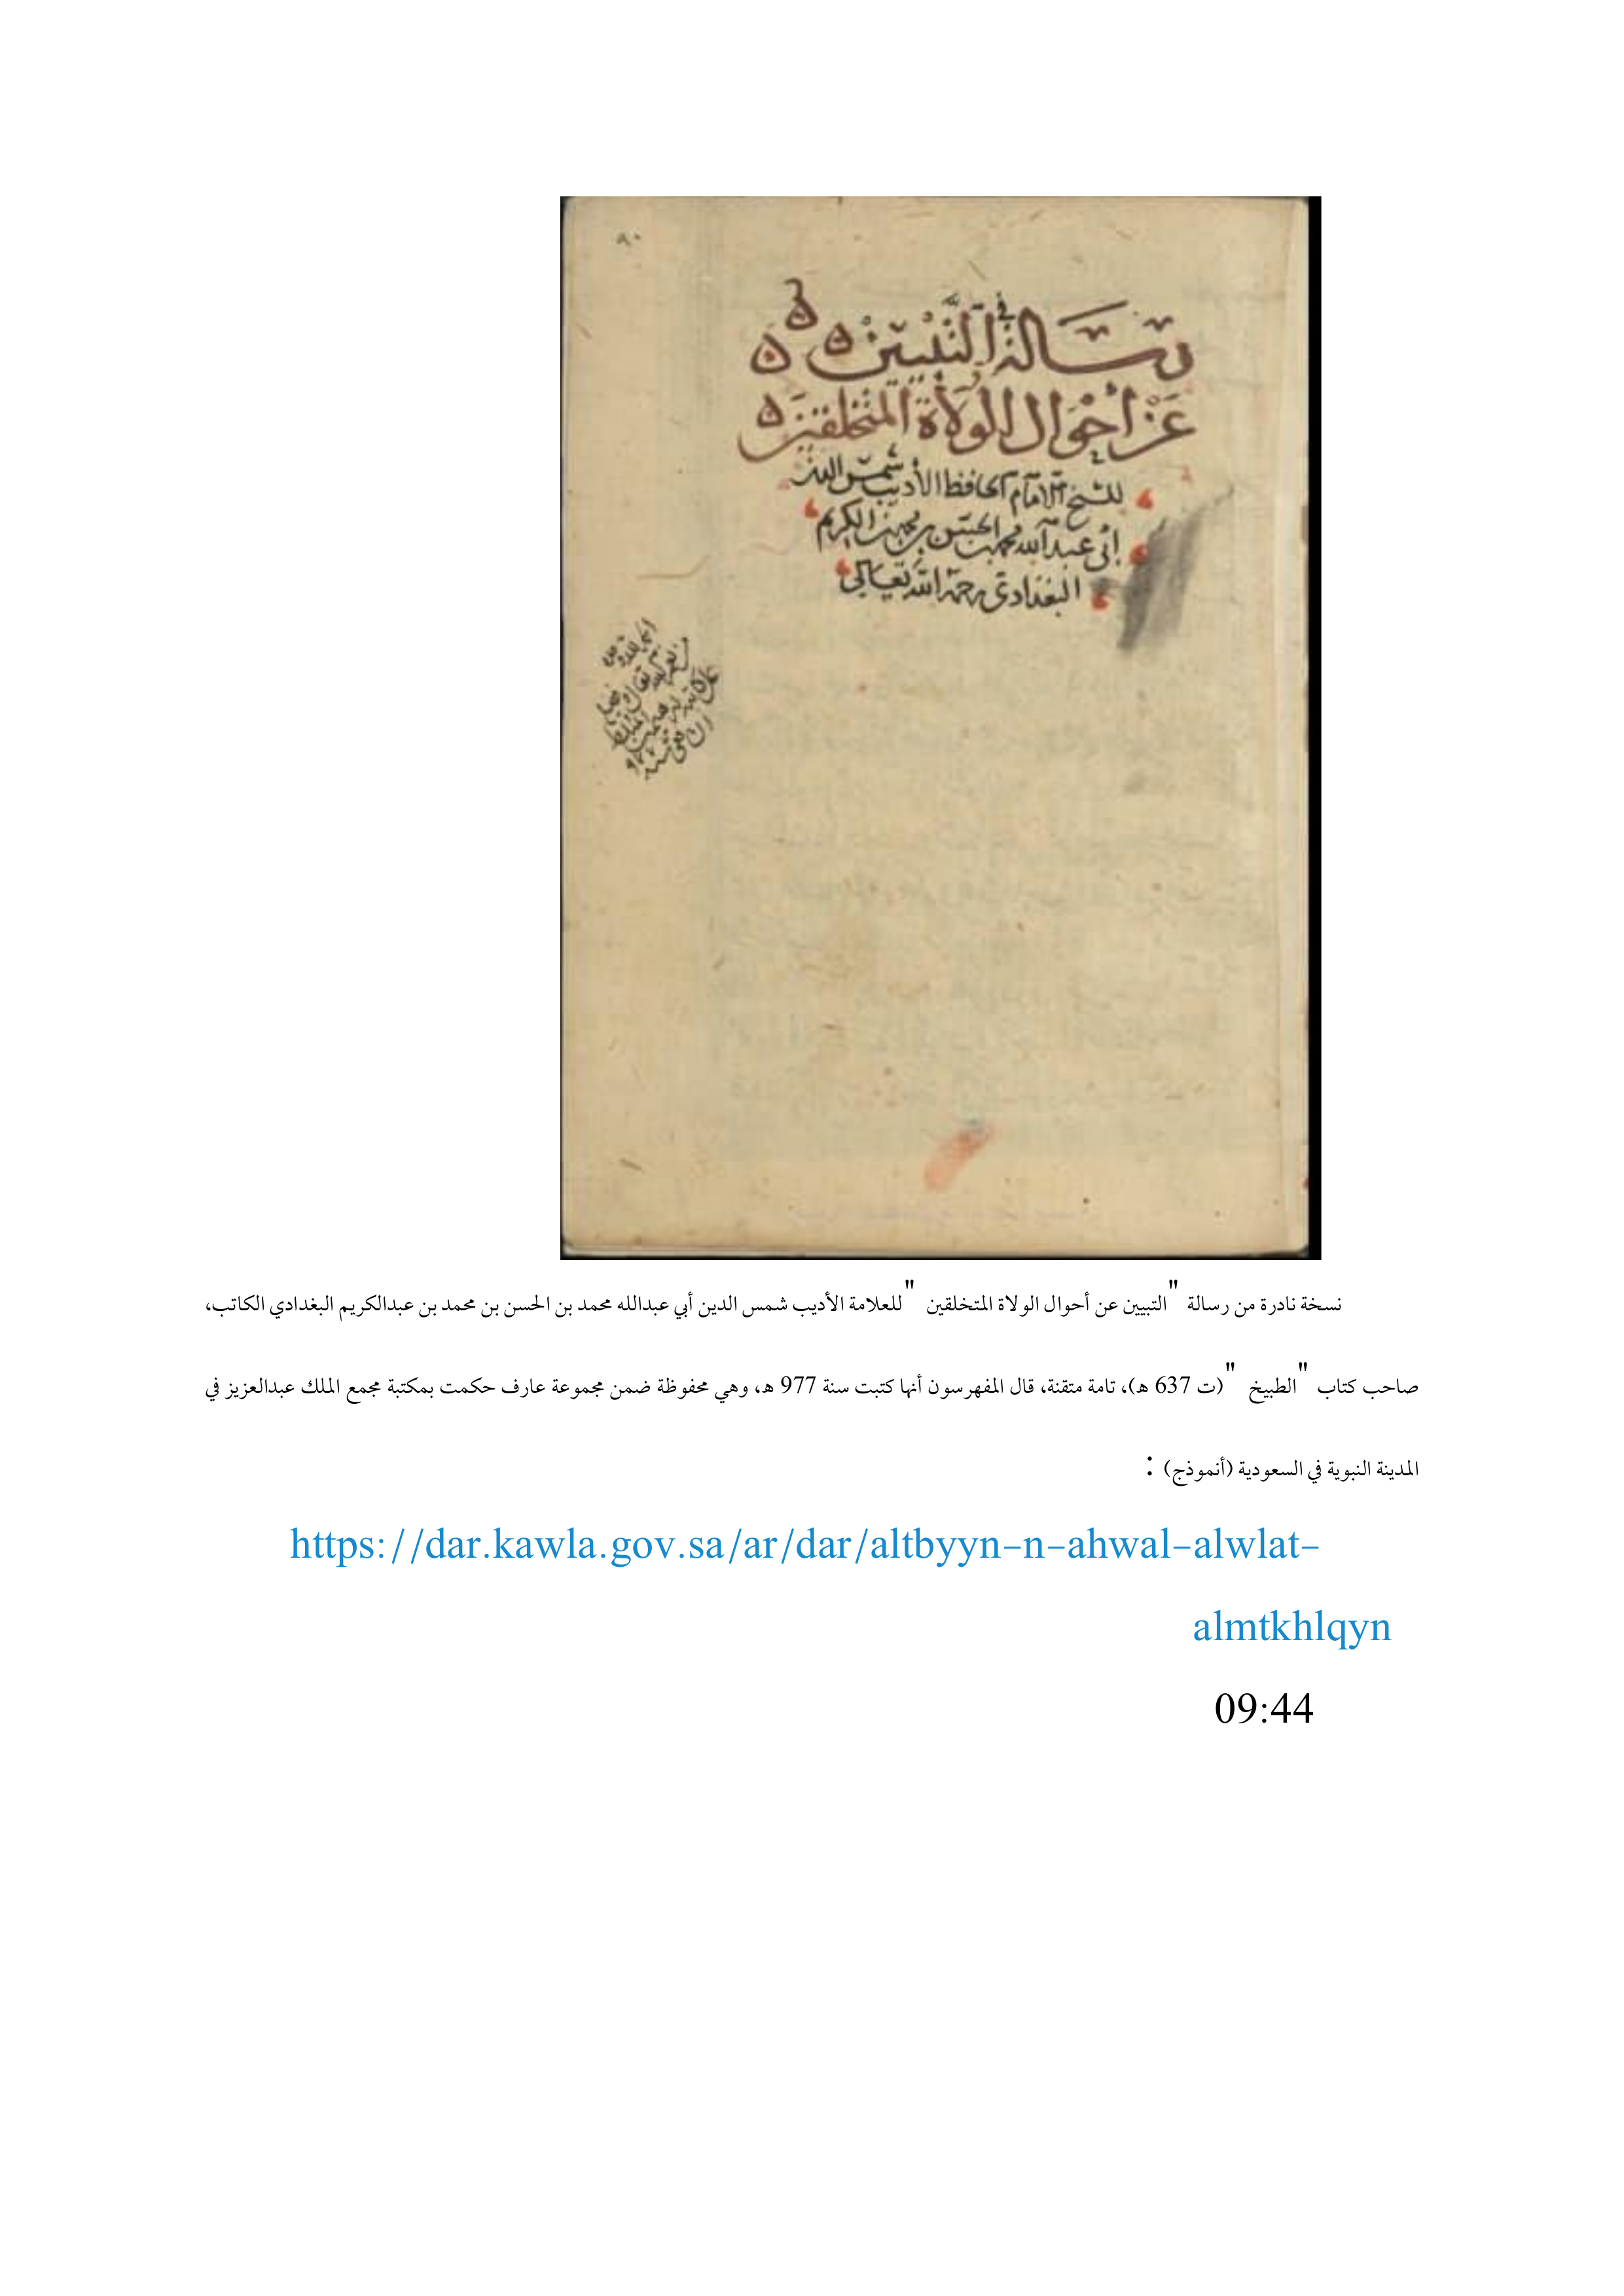 ٩٠
رسالة في التبيين
عن أحوال الولاة المتخلقين
للشيخ الامام الحافظ الأديب شمس الدين
أبي عبد الله محمد بن الحسن بن محمد بن الكريم
البغدادي رحمه الله تعالى
الحمد لله
من نعم الله تعالى
نسخة نادرة من رسالة "التبيين عن أحوال الولاة المتخلقين" للعلامة الأديب شمس الدين أبي عبدالله محمد بن الحسن بن محمد بن عبدالكريم البغدادي الكاتب،
صاحب كتاب "الطبيخ" (ت 637 هـ)، تامة متقنة، قال المفهرسون أنها كتبت سنة 977 هـ، وهي محفوظة ضمن مجموعة عارف حكمت بمكتبة مجمع الملك عبدالعزيز في
المدينة النبوية في السعودية (أنموذج) :
https://dar.kawla.gov.sa/ar/dar/altbyyn-n-ahwal-alwlat-
almtkhlqyn
09:44